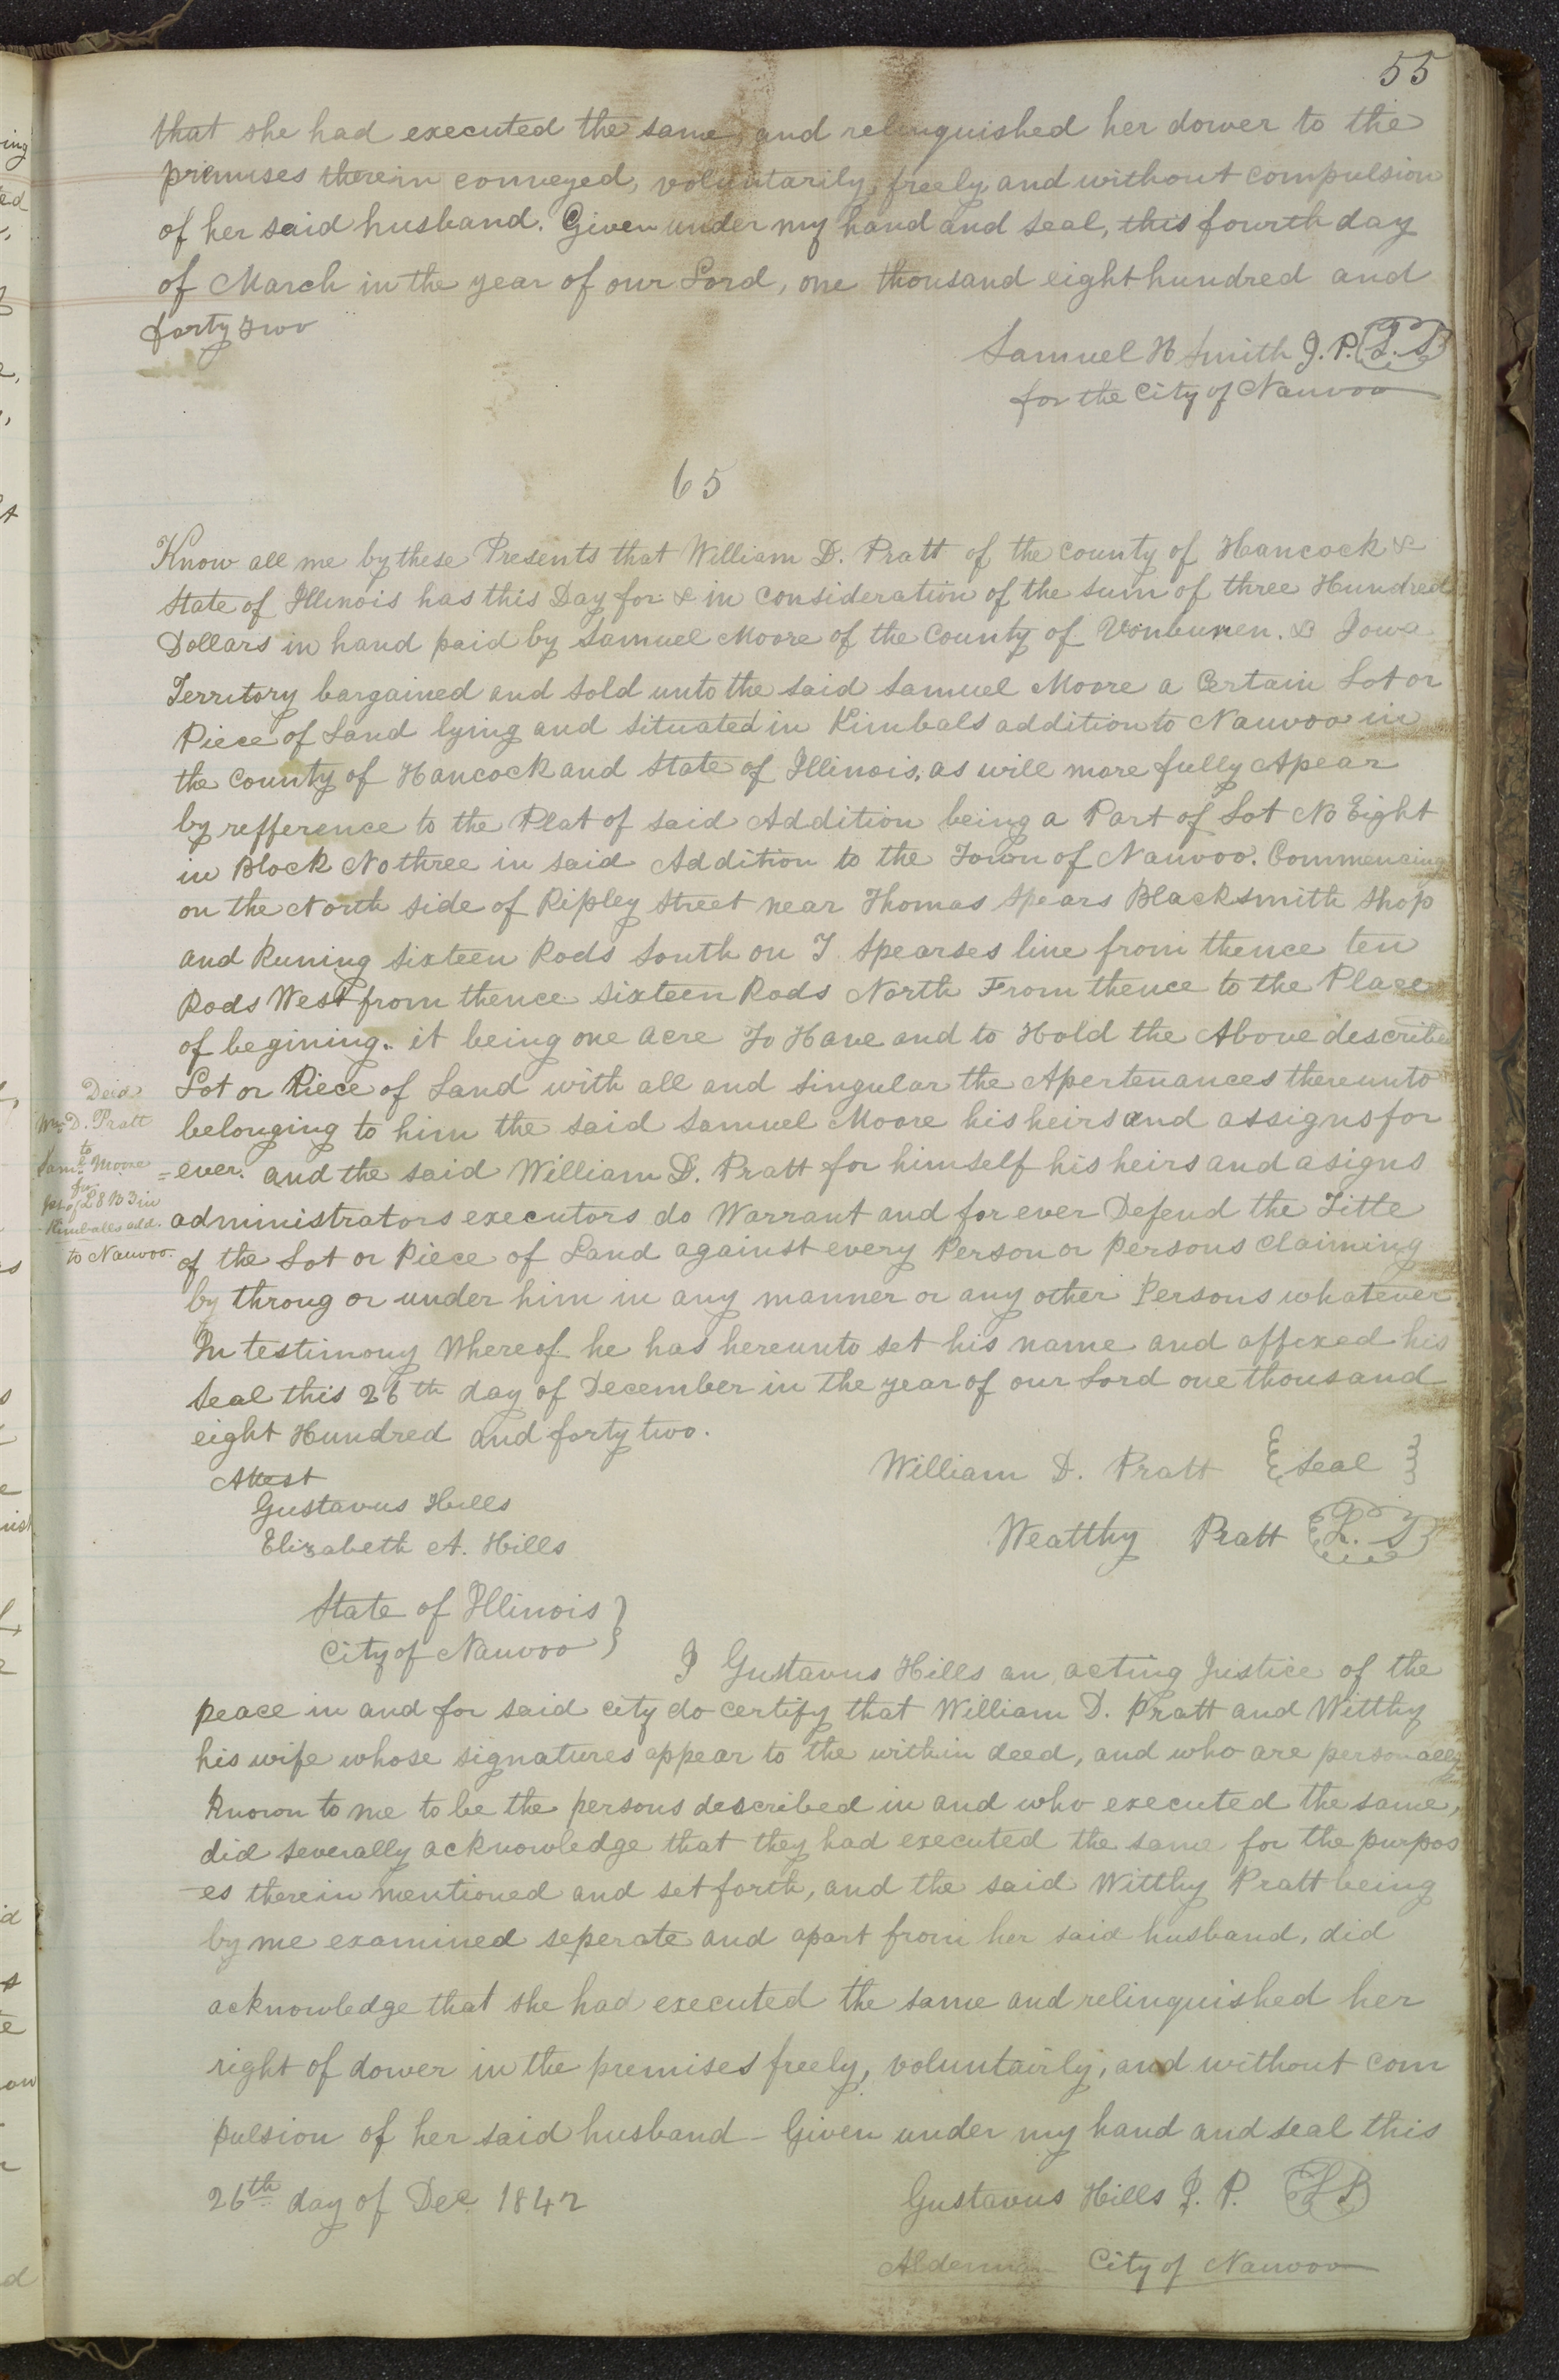 55
that she had executed the same, and relinquished her dower to the
premises therein conveyed, voluntarily, freely, and without compulsion
of her said husband. Given under my hand and seal, this fourth day
of March in the year of our Lord, one thousand eight hundred and
forty two
Samuel H Smith J. P. L. S
for the City of Nauvoo
65
Know all me by these Presents that William D. Pratt of the county of Hancock &
State of Illinois has this Day for & in consideration of the sum of three Hundred
Dollars in hand paid by Samuel Moore of the County of Vonburen. & Iowa
Territory bargained and sold unto the said Samuel Moore a Certain Lot or
Piece of Land lying and situated in Kimbals addition to Nauvoo in
the County of Hancock and State of Illinois, as will more fully Apear
by refference to the Plat of said Addition being a Part of Lot No Eight
in Block No three in said Addition to the Town of Nauvoo. Commencing
on the North side of Ripley Street near Thomas Spears Blacksmith Shop
and Runing sixteen Rods South on T Spearses line from thence ten
Rods West from thence sixteen Rods North From thence to the Place
of begining. it being one acre To Have and to Hold the Above describe
Lot or Piece of Land with all and singular the Apertenances thereunto
belonging to him the said Samuel Moore his heirs and assigns for
=ever. and the said William D. Pratt for himself his heirs and asigns
administrators executors do Warrant and for ever Defend the Title
of the Lot or Piece of Land against every Person or persons Claiming
by throug or under him in any manner or any other Persons whatever
In testimony Whereof he has hereunto set his name and affixed his
Seal this 26th day of December in the year of our Lord one thousand
eight Hundred and forty two.
Deed
Wm D. Pratt
to
Saml Moore
for
pt of L 8 B 3 in
Kimballs add.
to Nauvoo.
William D. Pratt {Seal}
Attest
Gustavus Hills
Elizabeth A. Hills
Wealthy Pratt L. S
State of Illinois }
City of Nauvoo }
I Gustavus Hills an acting Justice of the
peace in and for said city do certify that William D. Pratt and Witthy
his wife whose signatures appear to the within deed, and who are personally
known to me to be the persons described in and who executed the same,
did severally acknowledge that they had executed the same for the purpos
-es therein mentioned and set forth, and the said Witthy Pratt being
by me examined seperate and apart from her said husband, did
acknowledge that she had executed the same and relinquished her
right of dower in the premises freely, voluntairly, and without com
pulsion of her said husband - Given under my hand and seal this
26th day of Dec 1842
Gustavus Hills J. P. L S
Alderman City of Nauvoo